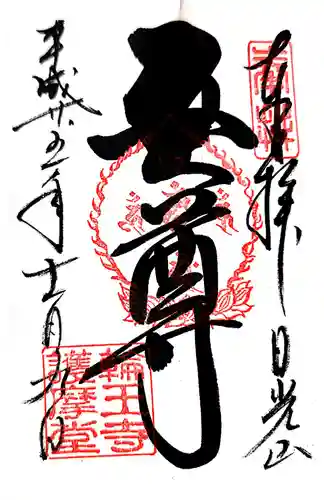 奉拝 日光山
五尊
平成廿五年十一月九日
輪王寺
護摩堂